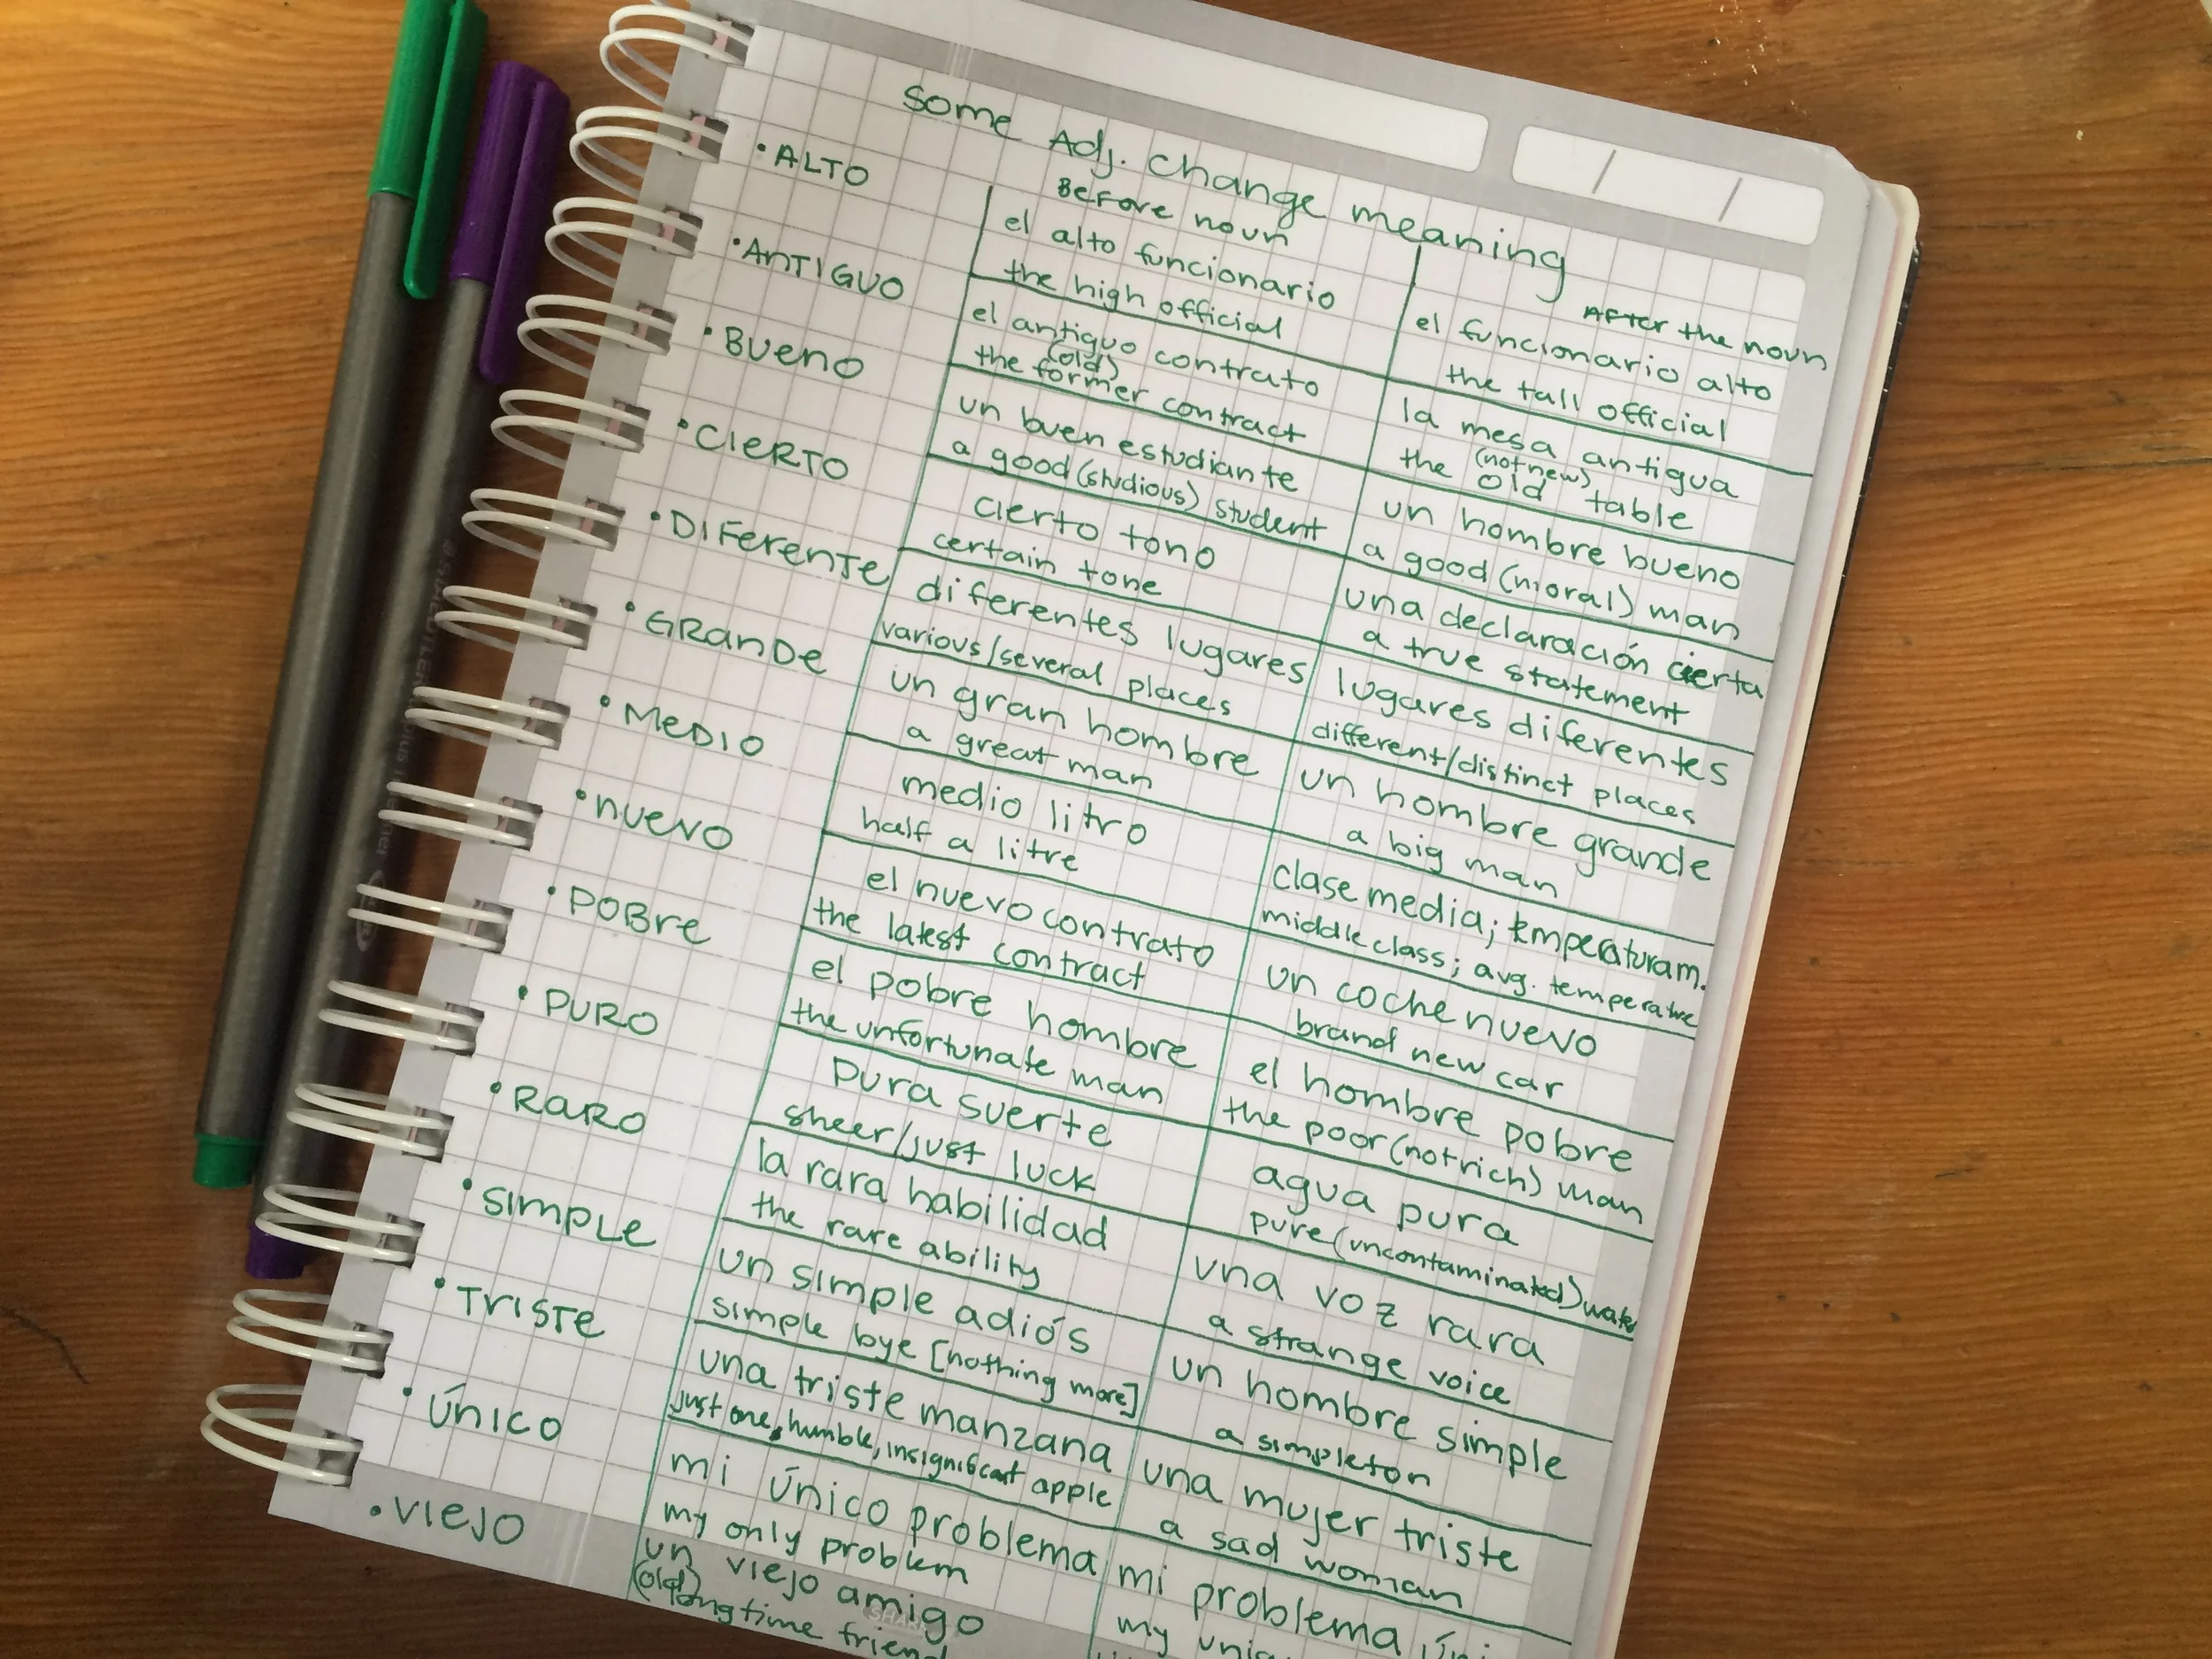 Some Adj. change meaning
Before noun
After the noun
• ALTO
el alto funcionario
the high official
el funcionario alto
the tall official
• ANTIGUO
el antiguo contrato
(old)
the former contract
la mesa antigua
(not new)
the old table
• BUENO
un buen estudiante
a good (studious) student
un hombre bueno
a good (moral) man
• CIERTO
cierto tono
certain tone
una declaración cierta
a true statement
• DIFERENTE
diferentes lugares
various/several places
lugares diferentes
different/distinct places
• GRANDE
un gran hombre
a great man
un hombre grande
a big man
• MEDIO
medio litro
half a litre
clase media; temperatura m.
middle class; avg. temperature
• NUEVO
el nuevo contrato
the latest contract
un coche nuevo
brand new car
• POBRE
el pobre hombre
the unfortunate man
el hombre pobre
the poor (not rich) man
• PURO
pura suerte
sheer/just luck
agua pura
pure (uncontaminated) water
• RARO
la rara habilidad
the rare ability
una voz rara
a strange voice
• SIMPLE
un simple adiós
simple bye [nothing more]
un hombre simple
a simpleton
• TRISTE
una triste manzana
just one, humble, insignificant apple
una mujer triste
a sad woman
• ÚNICO
mi único problema
my only problem
mi problema
my
• VIEJO
un viejo amigo
(old) longtime friend